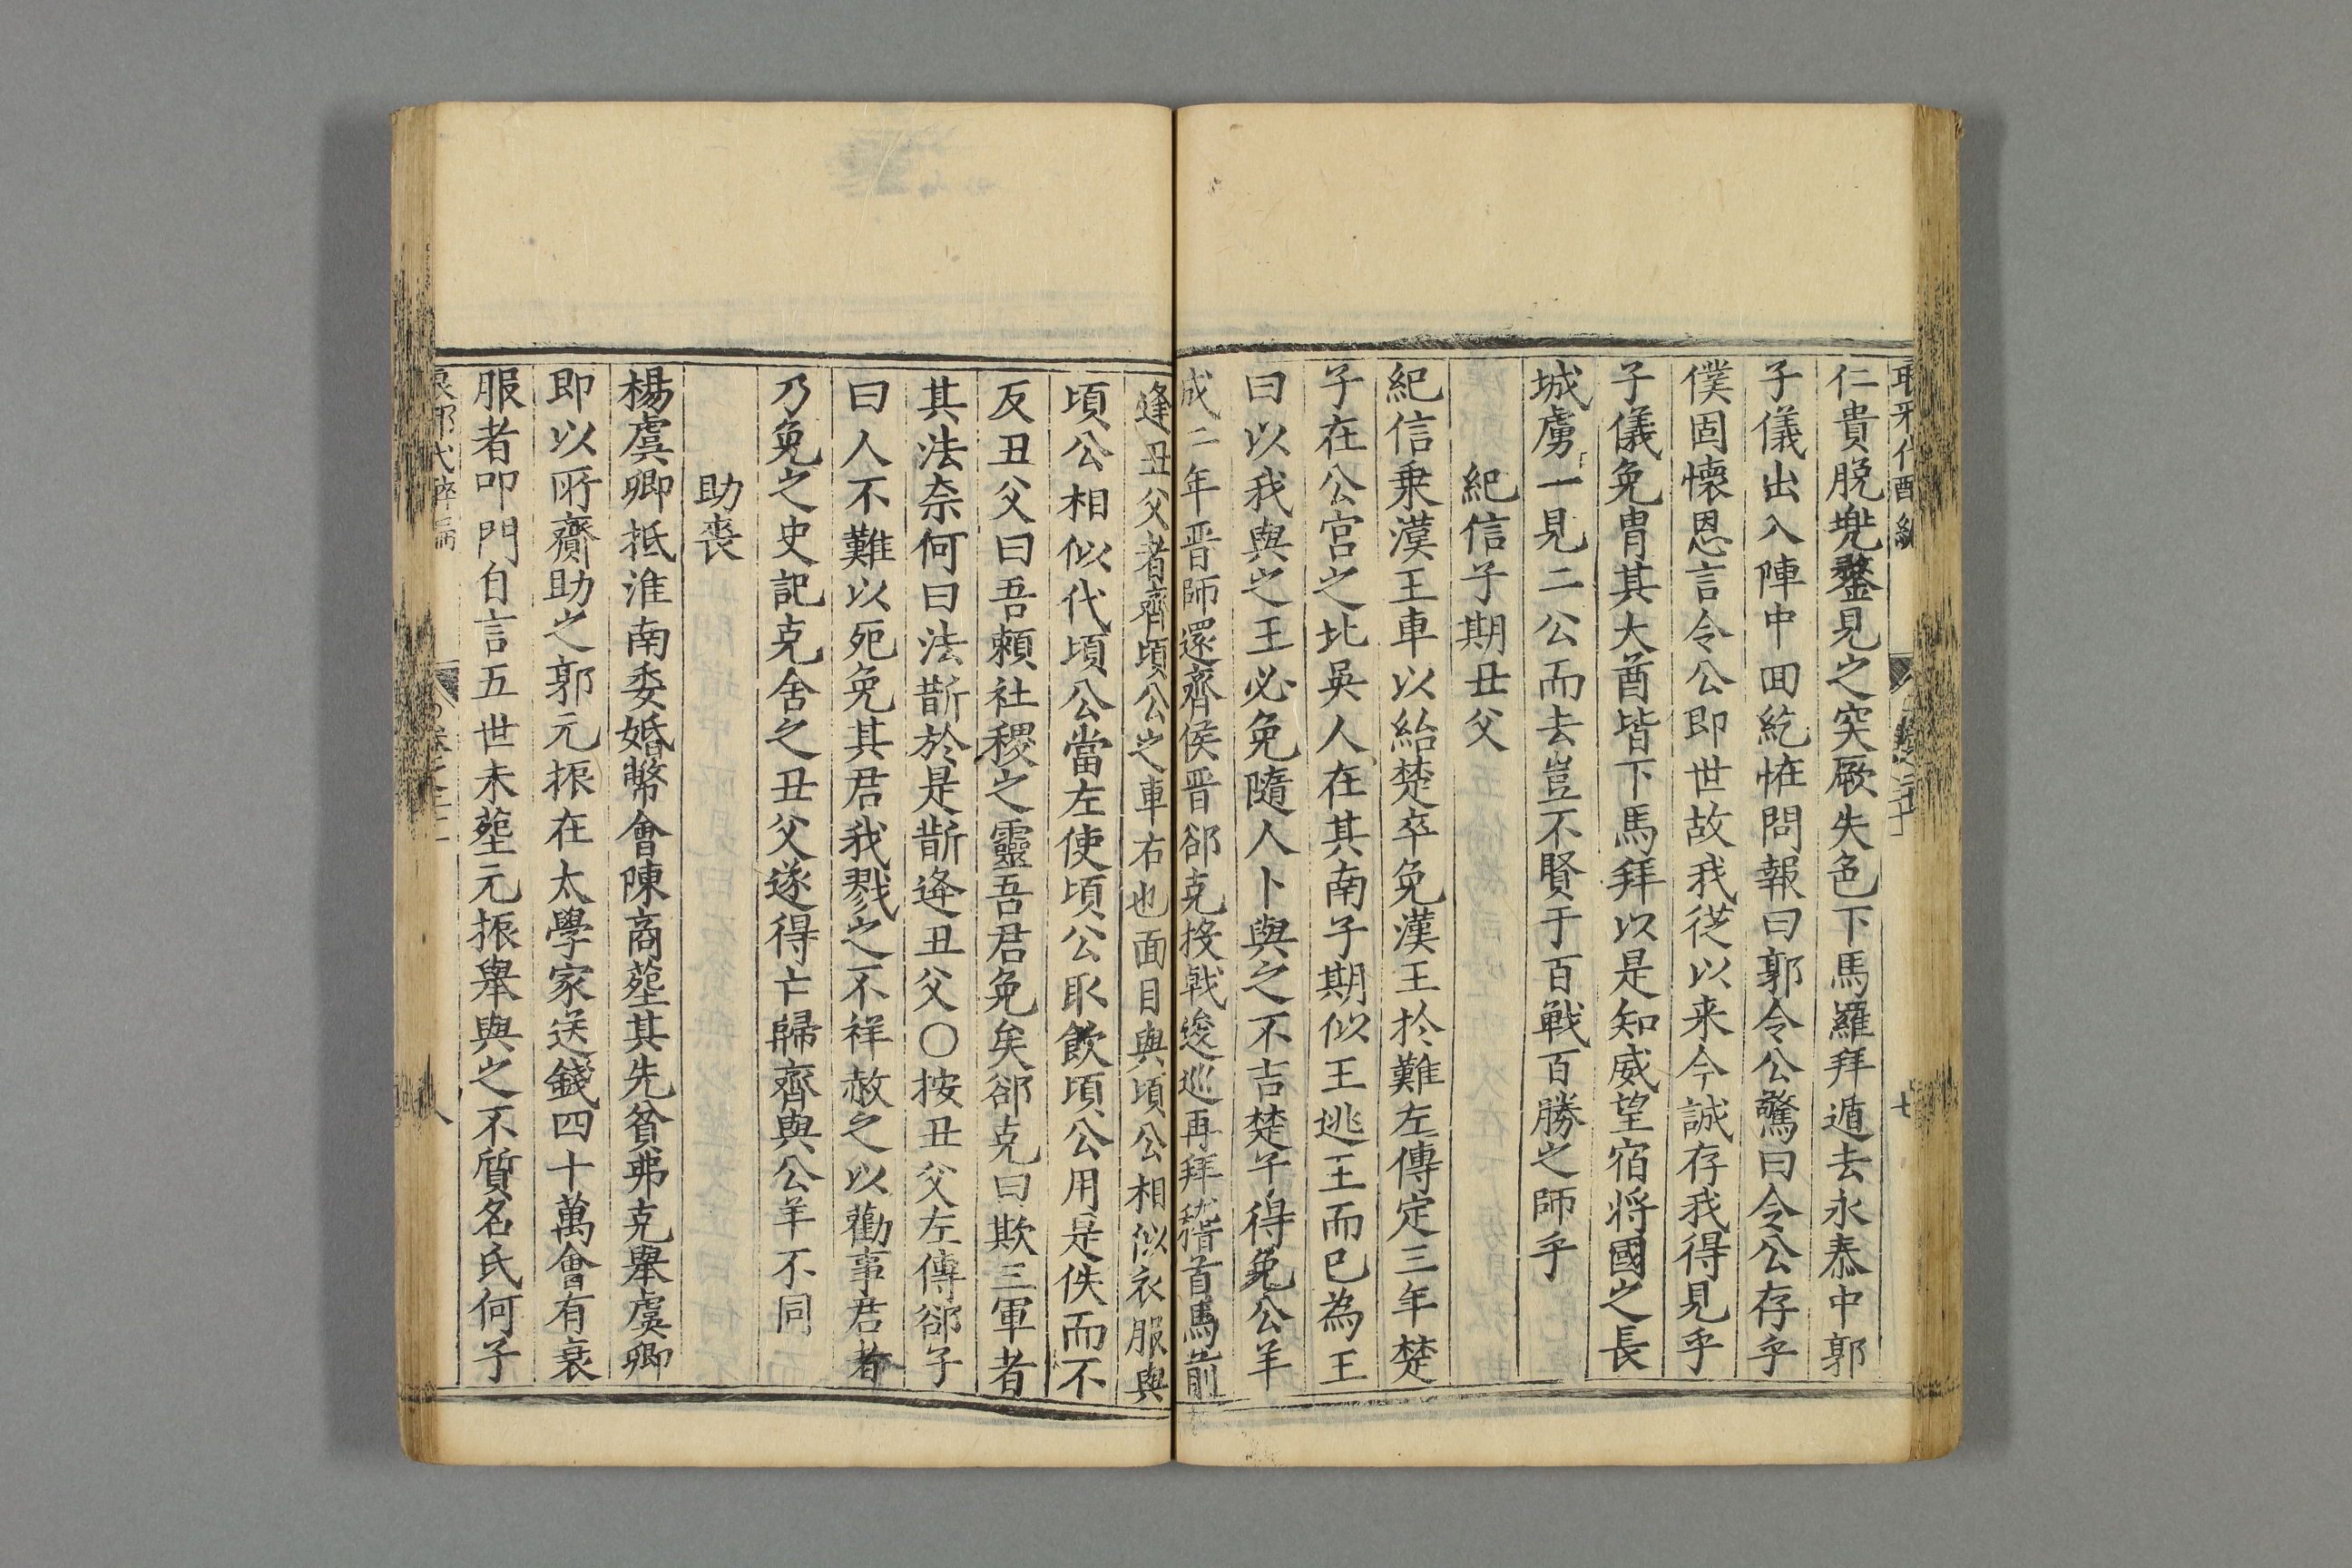 仁貴脫兠鍪見之突厥失色下馬羅拜遁去永泰中郭
子儀出入陣中回紇恠問報曰郭令公驚曰令公存乎
僕固懷恩言令公即世故我從以来今誠存我得見乎
子儀免胄其大酋皆下馬拜以是知威望宿将國之長
城虜一見二公而去豈不賢于百戰百勝之師乎
紀信子期丑父
紀信乗漢王車以紿楚卒免漢王於難左傳定三年楚
子在公宫之北吳人在其南子期似王逃王而己為王
曰以我與之王必免隨人卜與之不吉楚子得免公羊
成二年晋師還齊侯晋郤克投戟逡巡再拜稽首馬前
逢丑父者齊頃公之車右也面目與頃公相似衣服與
頃公相似代頃公當左使頃公取飲頃公用是佚而不
反丑父曰吾賴社稷之靈吾君免矣郤克曰欺三軍者
其法奈何曰法斮於是斮逄丑父○按丑父左傳郤子
曰人不難以死免其君我戮之不祥赦之以勸事君者
乃免之史記克舍之丑父遂得亡歸齊與公羊不同
助喪
楊虞卿抵淮南委婚幣會陳商塟其先貧弗克舉虞卿
即以所齎助之郭元振在太學家送錢四十萬會有衰
服者叩門自言五世未塟元振舉與之不質名氏何子